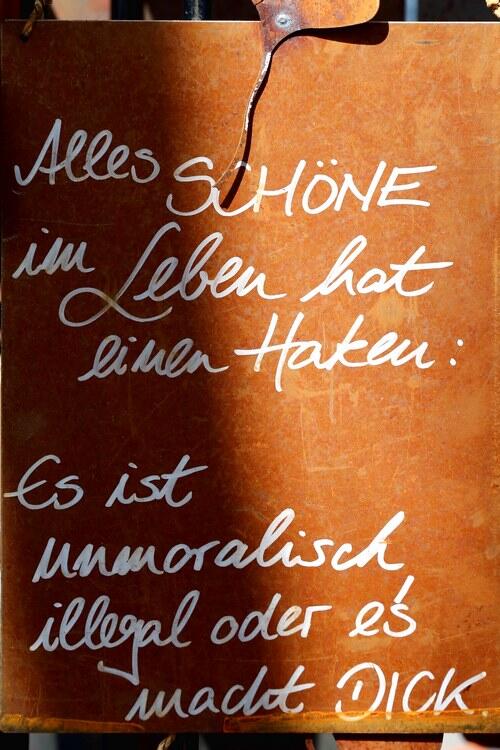 Alles SCHÖNE
im Leben hat
einen Haken:
Es ist
unmoralisch,
illegal oder es's
macht DICK